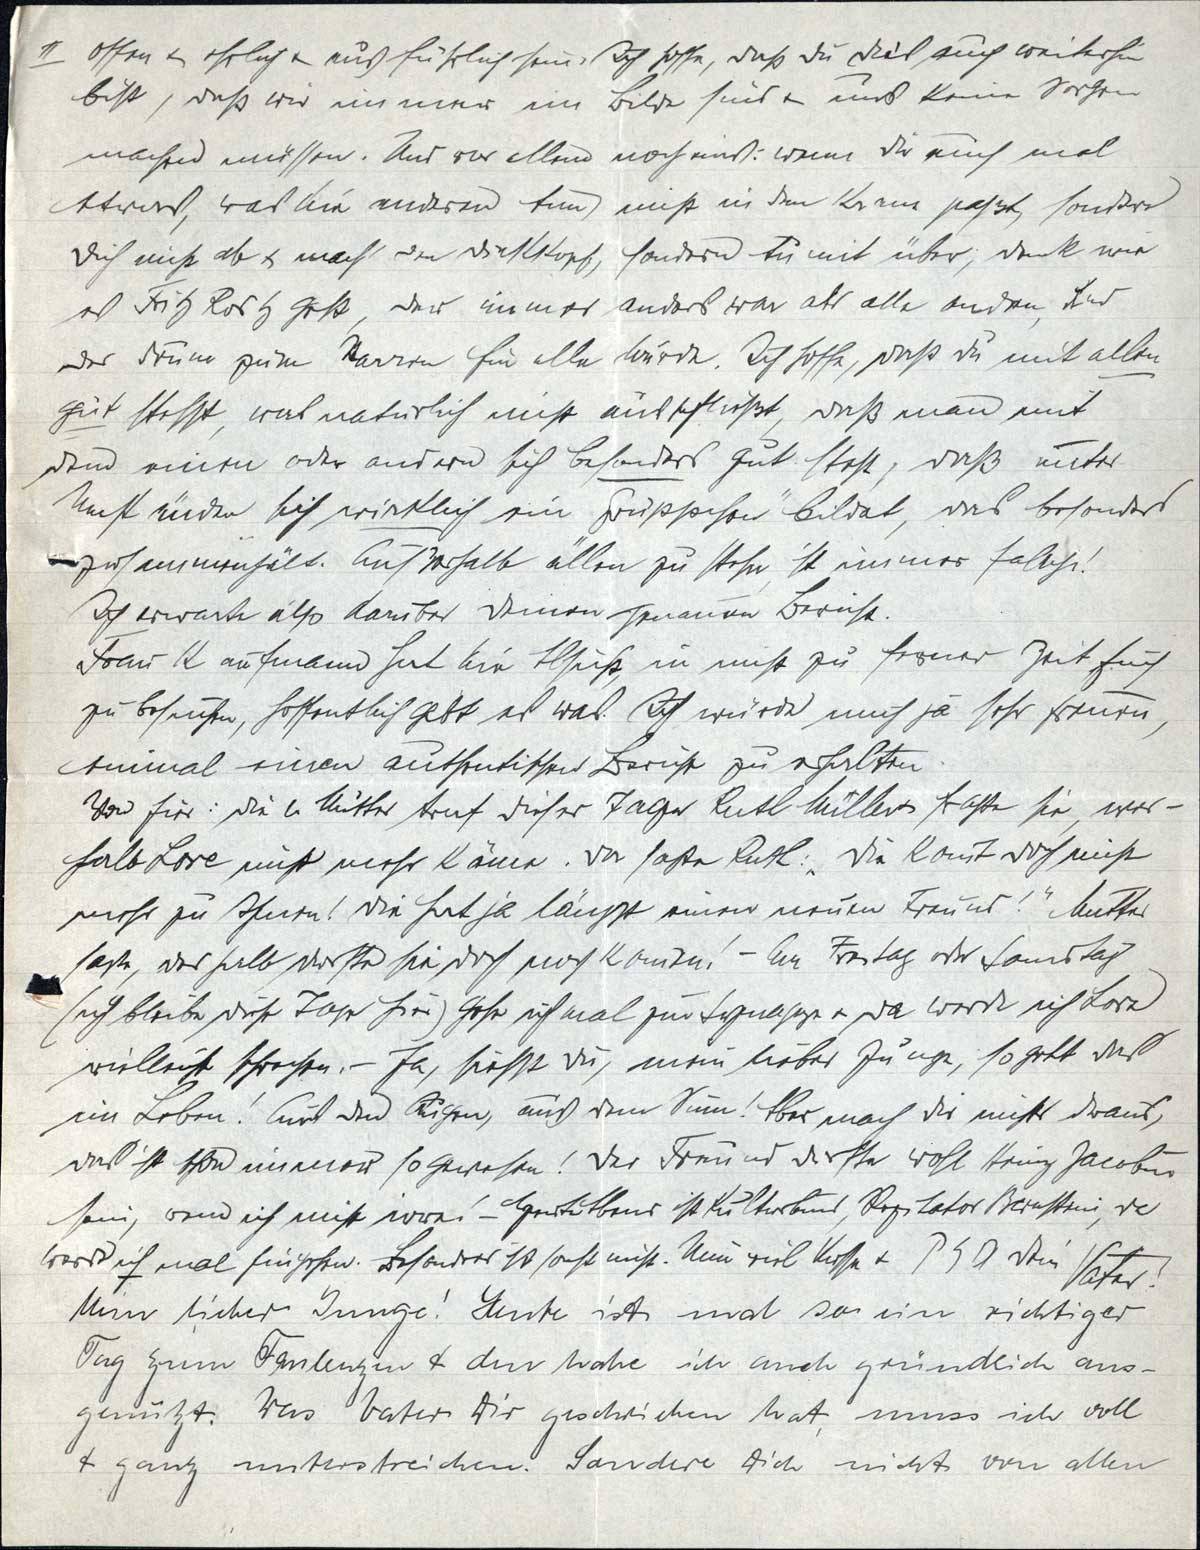 II offen & ehrlich & ausführlich sein. Ich hoffe, daß du dies auch weiterhin
bist, daß wir immer im Bilde sind & uns keine Sorgen
machen müssen. Und vor allem nocheins: wenn dir auch mal
etwas, was die anderen tun, nicht in den Kram paßt, sondere
Dich nicht ab & mach' den Dickkopf, sondern tu mit über, denk wie
es Fritz Rosh geht, der immer anders war als alle andern, und
der drum zum Narren für alle wurde. Ich hoffe, daß du mit allen
gut stehst, was natürlich nicht ausschließt, daß man mit
dem einen oder andern sich besonders gut steht, daß unter
Umständen sich wirklich ein "Grüppchen" bildet, das besonders
zusammenhält. Außerhalb allen zu stehn ist immer falsch!
Ich erwarte also darüber deinen genauen Bericht.
Frau Kaufmann hat die Absicht, in nicht zu ferner Zeit Euch
zu besuchen, hoffentlich gibt es was. Ich würde mich ja sehr freuen,
einmal einen authentischen Bericht zu erhalten.
Von hier: die l. Mutter traf dieser Tage Ruth Müller & fragte sie, wes-
halb Lore nicht mehr käme. Da sagte Ruth: „Die kommt doch nicht
mehr zu Ihnen! Die hat ja längst einen neuen Freund!" Mutter
sagte, deshalb dürfte sie doch noch kommen! – Am Freitag oder Samstag
(ich bleibe diese Tage hier) gehe ich mal zur Synagoge & da werde ich Lore
vielleicht sprechen. – Ja, siehst du, mein lieber Junge, so geht das
im Leben! Aus den Augen, aus dem Sinn! Aber mach dir nichts draus,
das ist schon immer so gewesen! Der Freund dürfte wohl Heinz Jacobus
sein, wenn ich nicht irre! – Heute Abend ist Kulturbund, Rezitator Bernstein, da
werde ich mal hingehen. Besonderes ist sonst nicht. Nun viel Küsse & Dein Vater!
Mein lieber Junge! Heute ist mal so ein richtiger
Tag zum Faulenzen & den habe ich auch gründlich aus-
genützt. Was Vater Dir geschrieben hat, muss ich voll
& ganz unterstreichen. Sondere Dich nicht von allen